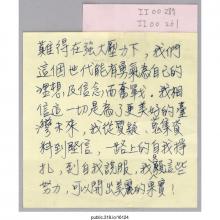 II 00 289
II 00 261
難得在強大壓力下，我們
這個世代能有勇氣為自己的
理想及信念而奮戰，我相
信這一切是為了更美好的臺
灣未來，我從質疑、蒐集資
料到堅信，一路上的自我掙
扎，到自我說服，我願這些
努力，可以開出美麗的果實！
public.318.io/16124